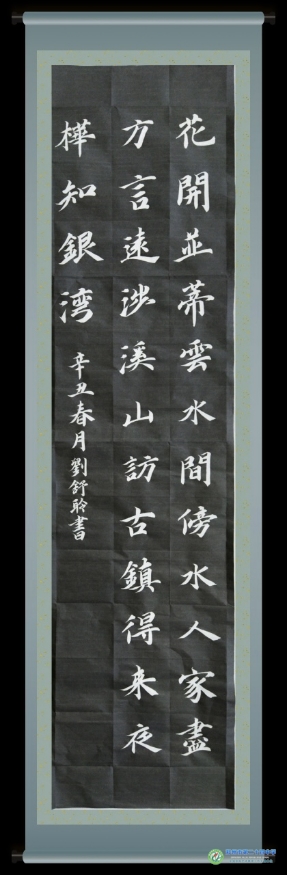 花開並蒂雲水間傍水人家盡
方言遠涉溪山訪古鎮得来夜
樺知銀湾
辛丑春月劉舒聆書